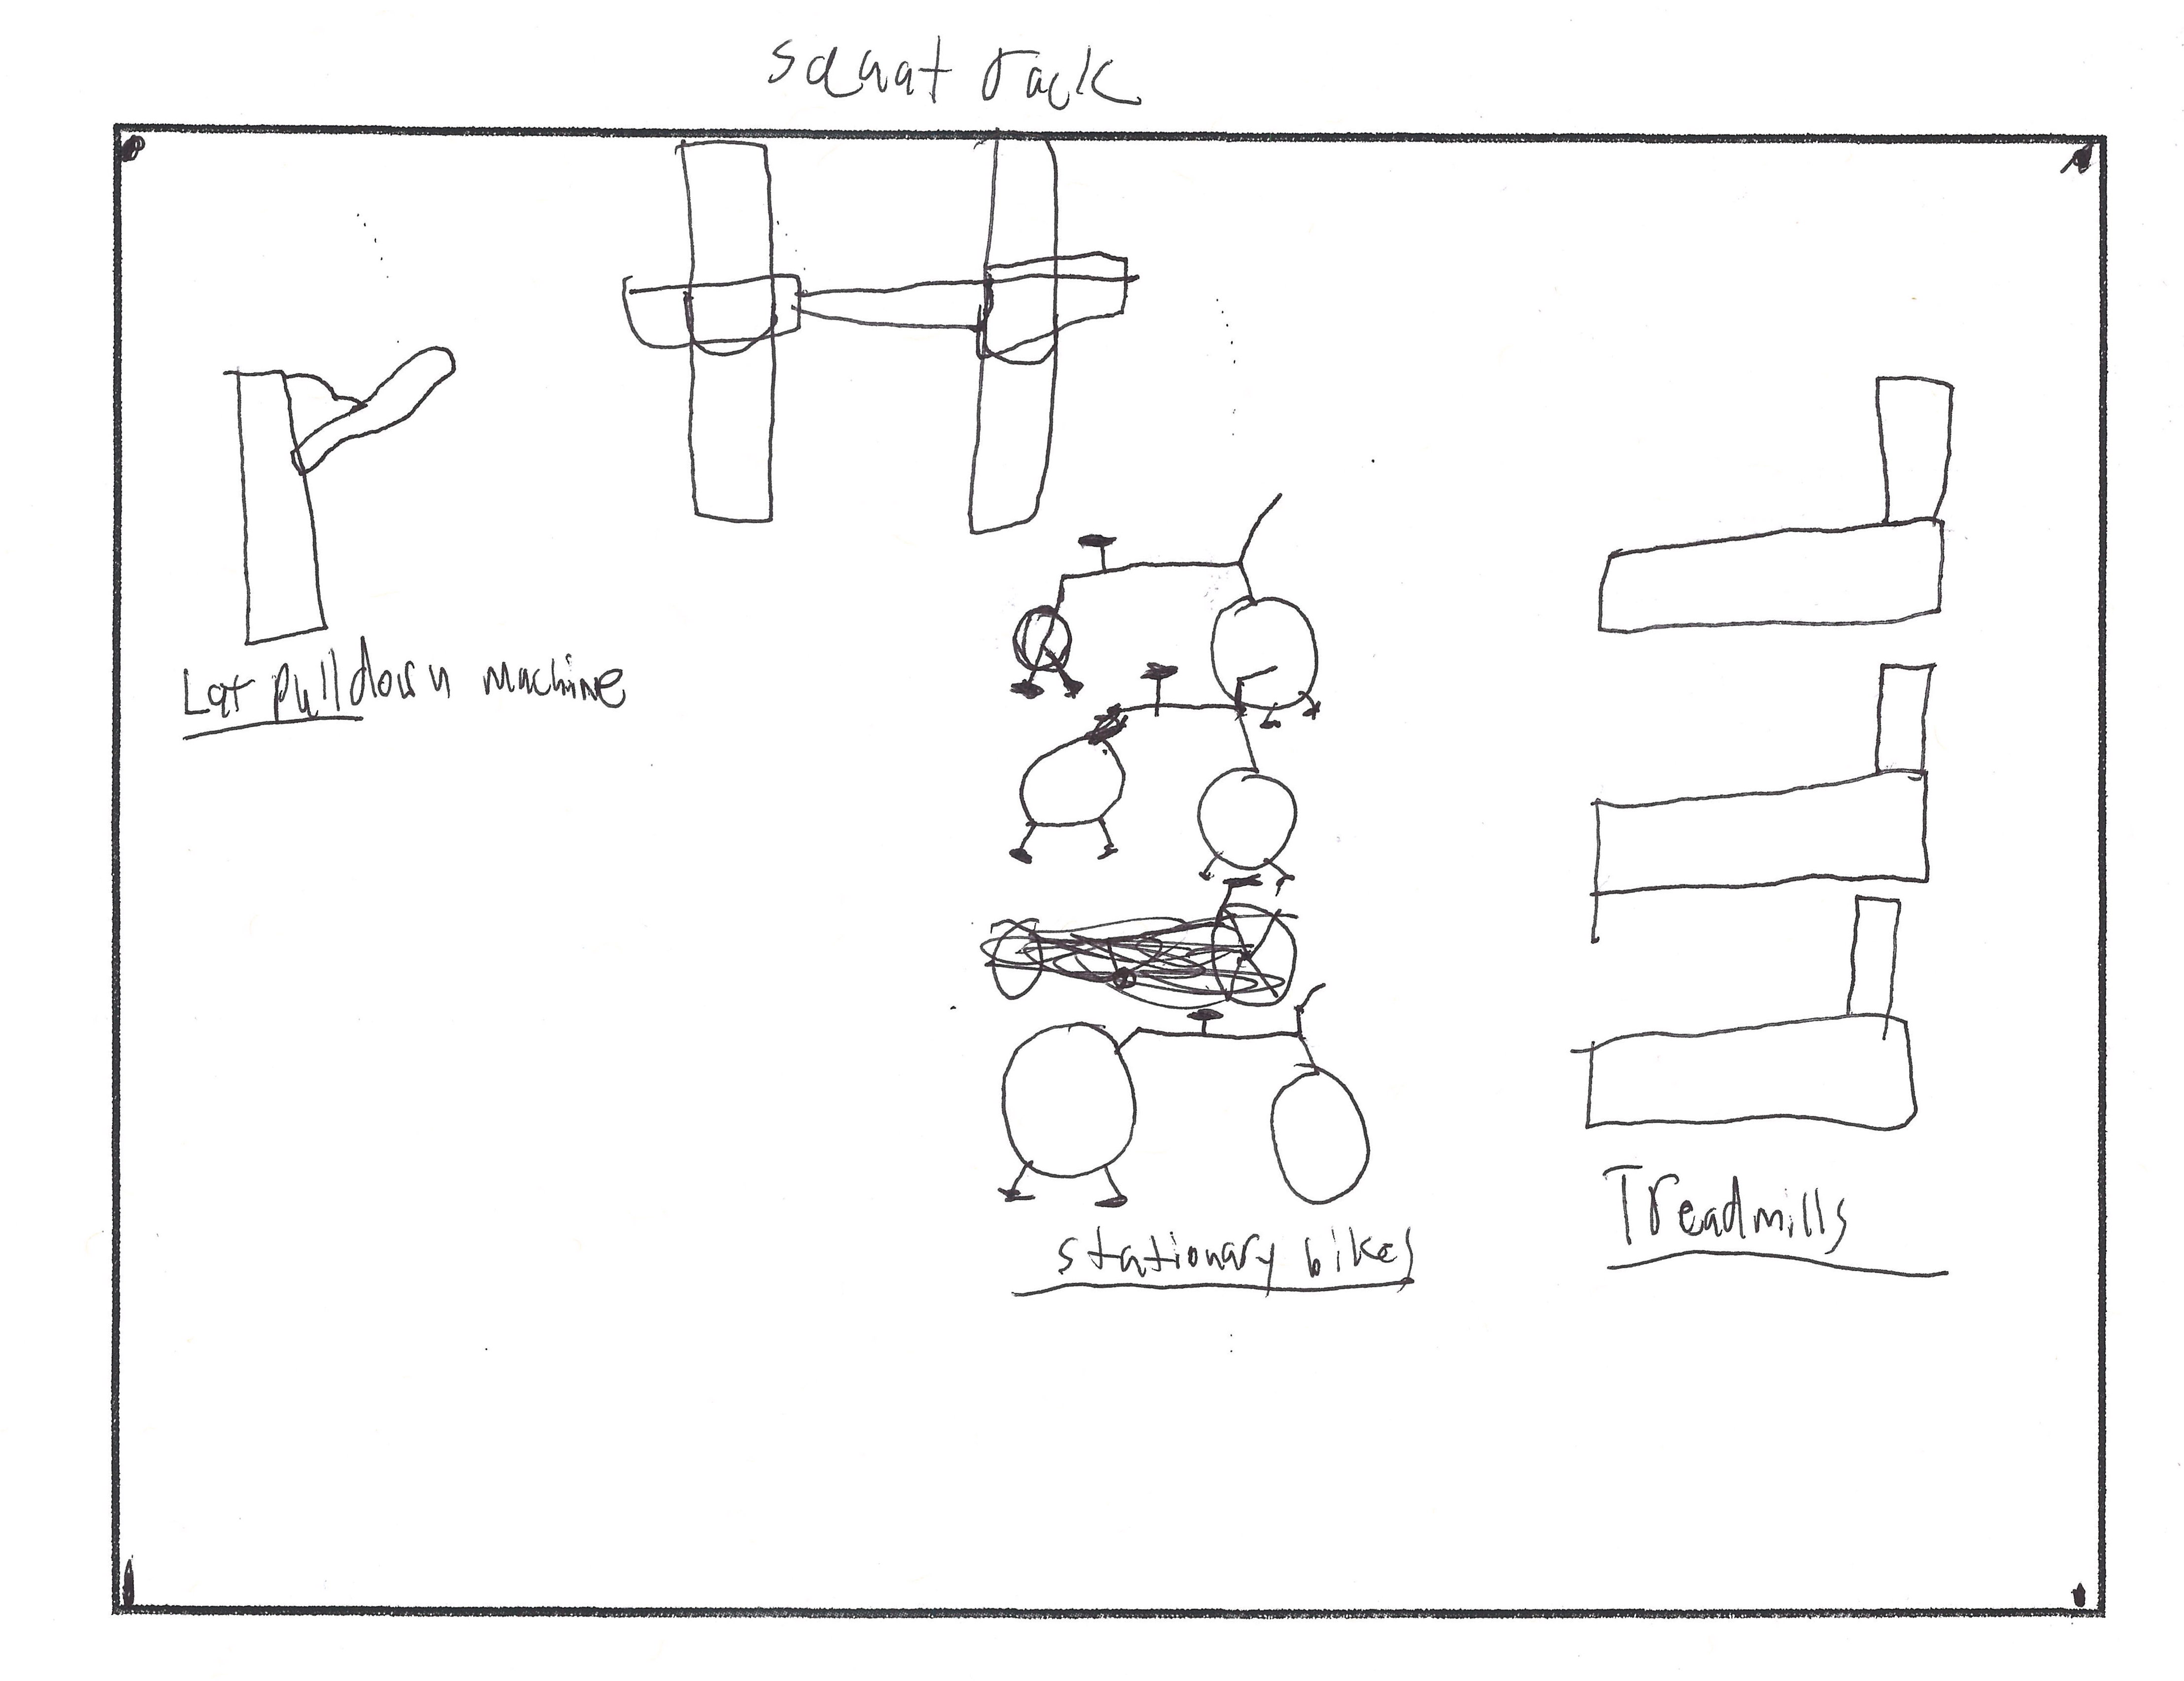 squat rack
Lat pulldown machine
stationary bikes
Treadmills